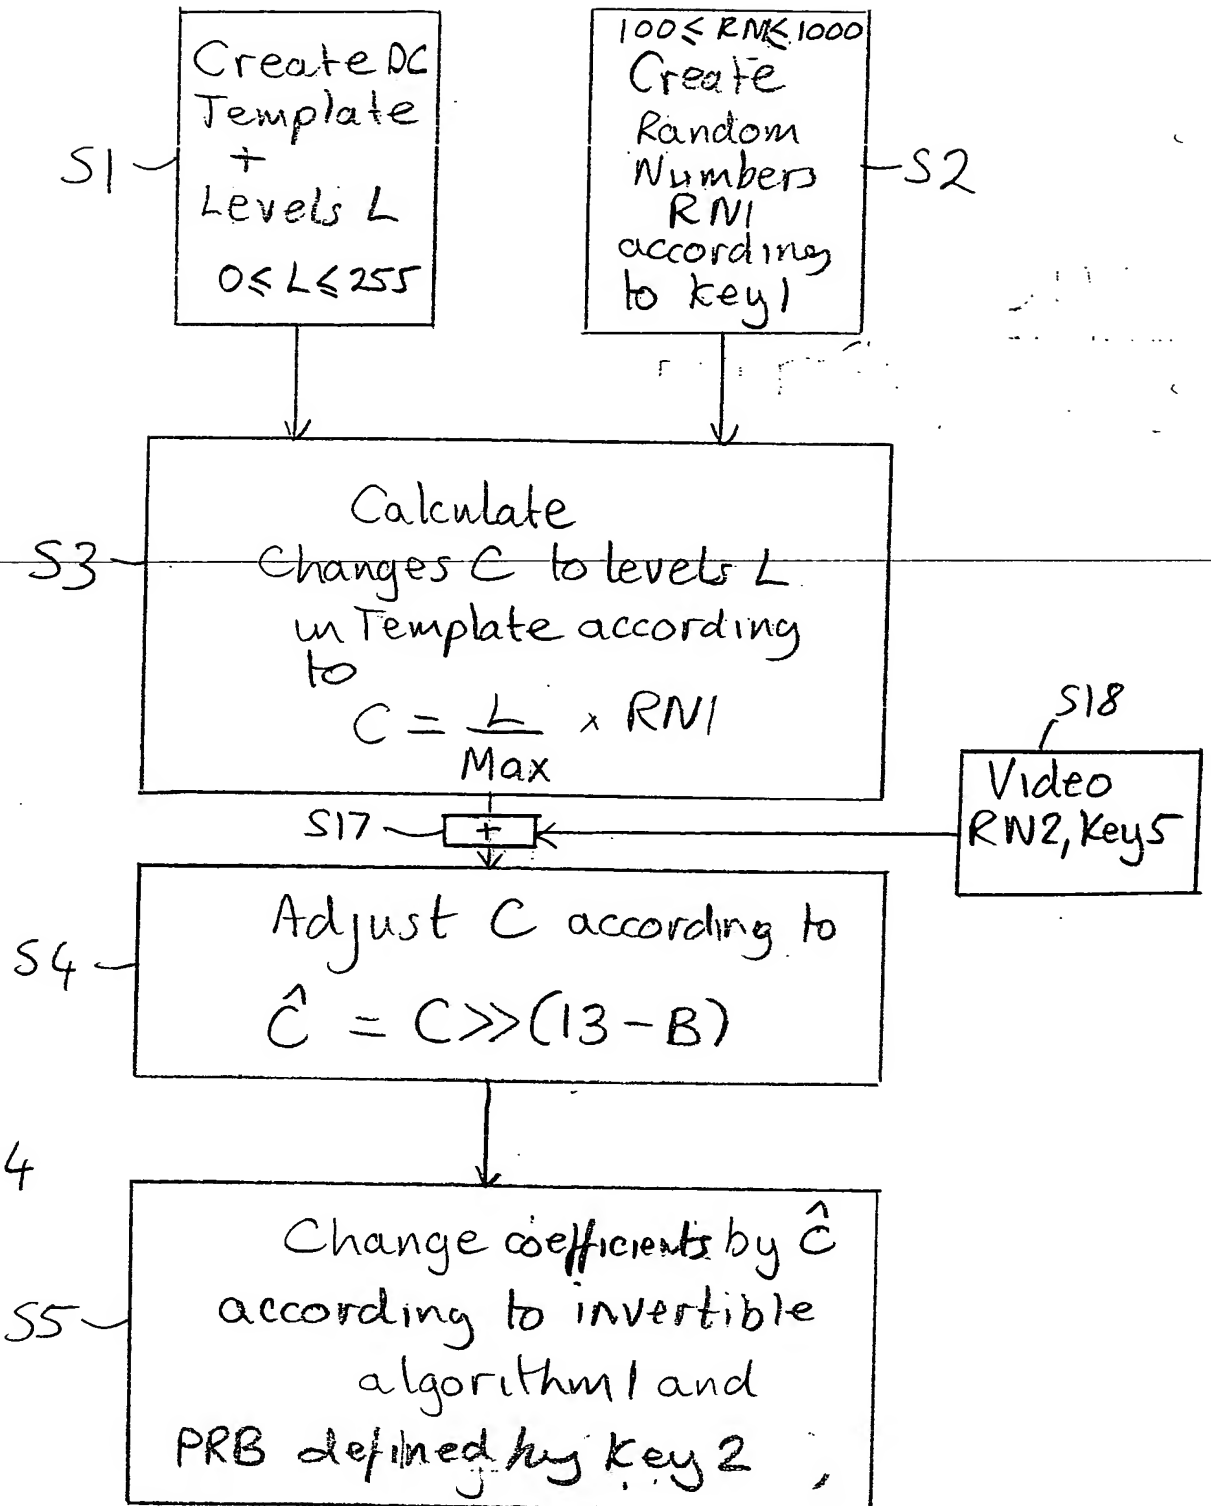 Create DC
Template
+
Levels L
0 ≤ L ≤ 255
S1
100 ≤ RN ≤ 1000
Create
Random
Numbers
RN1
according
to key1
S2
Calculate
Changes C to levels L
in Template according
to
C = L / Max × RN1
S3
S17
+
S18
Video
RN2, Key5
Adjust C according to
Ĉ = C>>(13-B)
S4
4
Change coefficients by Ĉ
according to invertible
algorithm 1 and
PRB defined by Key 2
S5